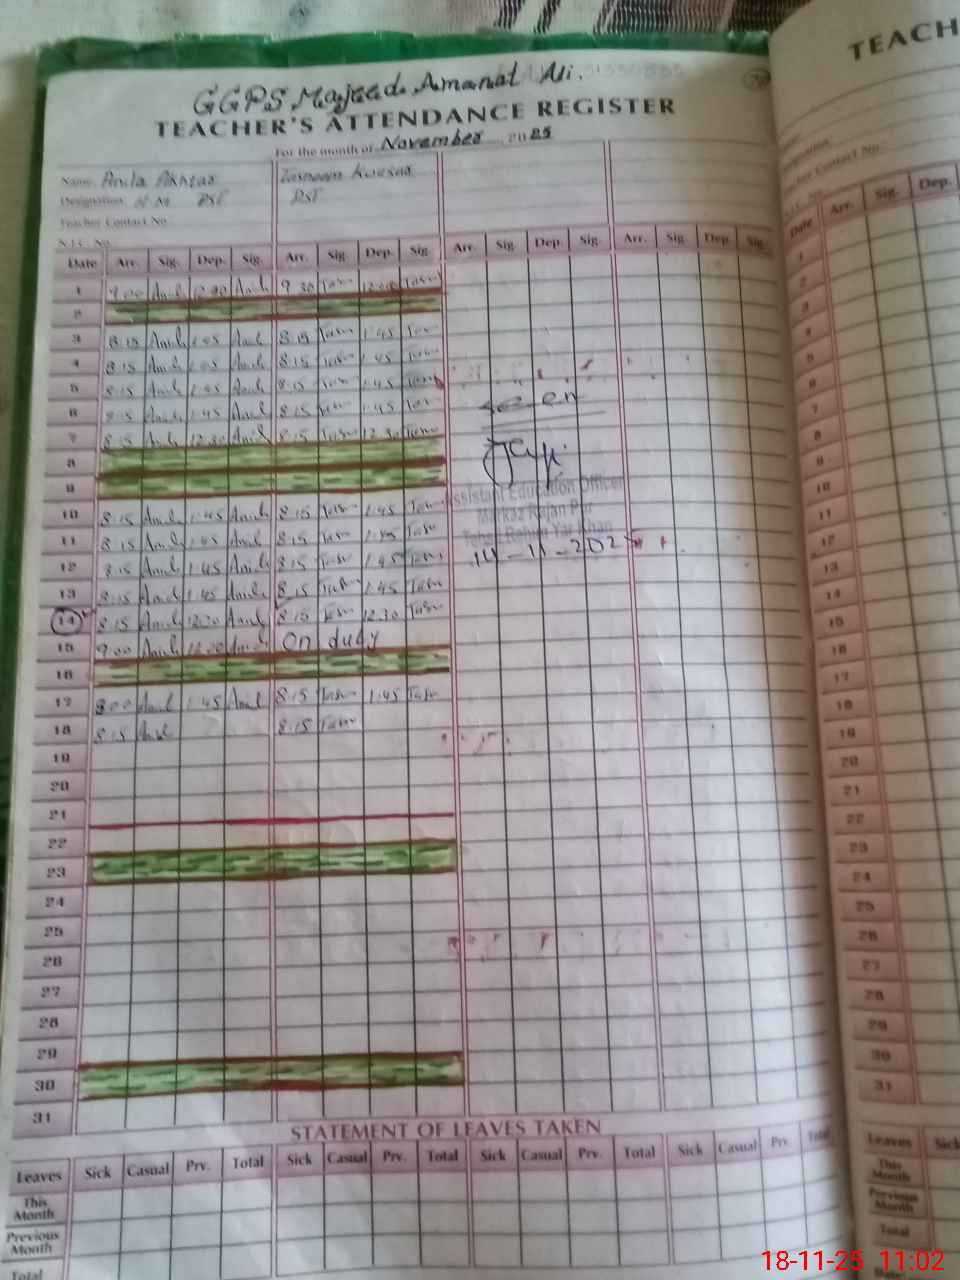 GGPS Majeed Amanat Ali.
TEACHER'S ATTENDANCE REGISTER
For the month of November 2025
Name Anila Akhtar
Designation PST
Teacher Contact No.
N.I.C. No.
Kousar
PST
Date Arr. Sig. Dep. Sig. Arr. Sig. Dep. Sig. Arr. Sig. Dep. Sig. Arr. Sig. Dep. Sig.
1 9.00 Anil 12.30 Anil 9.30 Tasn Tasn
2
3 8.15 Anil 1.45 Anil 8.15 Tasn 1.45 Tasn
4 8.15 Anil 1.45 Anil 8.15 Tasn 1.45 Tasn
5 8.15 Anil 1.45 Anil 8.15 Tasn 1.45 Tasn
6 8.15 Anil 1.45 Anil 8.15 Tasn 1.45 Tasn
7 8.15 Anil 12.30 Anil 8.15 Tasn 12.30 Tasn
8
9
10 8.15 Anil 1.45 Anil 8.15 Tasn 1.45 Tasn
11 8.15 Anil 1.45 Anil 8.15 Tasn 1.45 Tasn
12 8.15 Anil 1.45 Anil 8.15 Tasn 1.45 Tasn
13 8.15 Anil 1.45 Anil 8.15 Tasn 1.45 Tasn
14 8.15 Anil Anil 8.15 Tasn 12.30 Tasn
15 9.00 Anil Anil On duty
16
17 8.00 Anil 1.45 Anil 8.15 Tasn 1.45 Tasn
18 8.15 Anil 8.15 Tasn
19
20
21
22
23
24
25
26
27
28
29
30
31
seen
Assistant Education Officer
Markaz Rajan Pur
Tehsil Rahim Yar Khan
14-11-2025
STATEMENT OF LEAVES TAKEN
Leaves Sick Casual Prv. Total Sick Casual Prv. Total Sick Casual Prv. Total Sick Casual Prv. Total
This Month
Previous Month
Total
TEACH
Teacher Contact No.
Date Arr. Sig. Dep.
1
2
3
4
5
6
7
8
9
10
11
12
13
14
15
16
17
18
19
20
21
22
23
24
25
26
27
28
29
30
31
Leaves Sick
This Month
Previous Month
Total
18-11-25 11:02